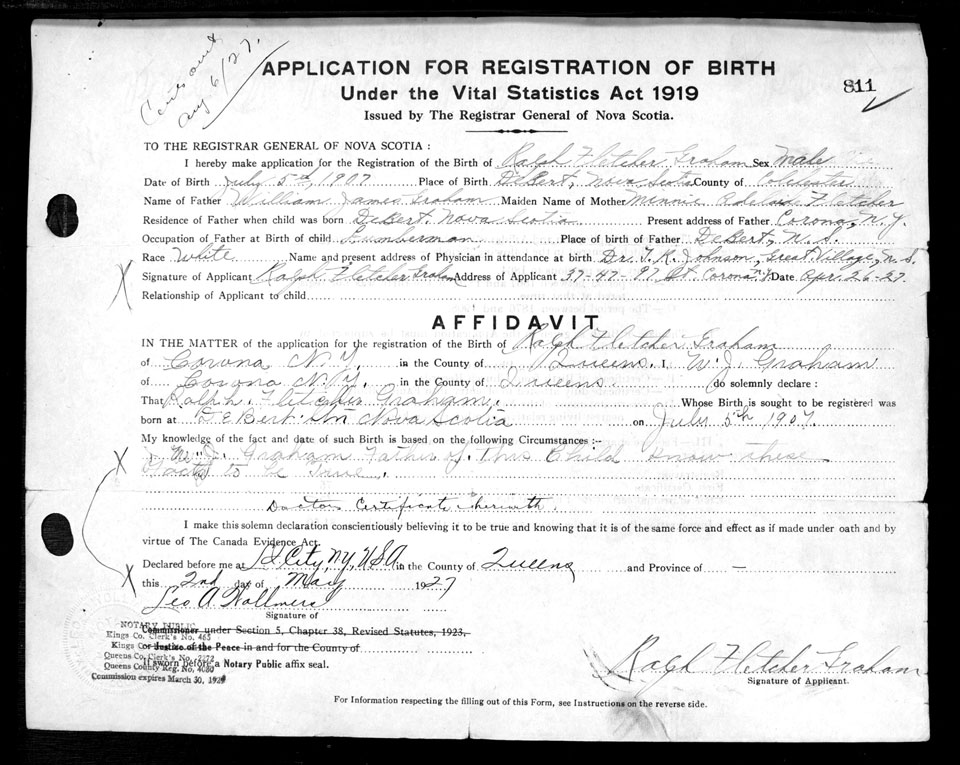 Cert sent
Aug 6/27.
APPLICATION FOR REGISTRATION OF BIRTH
811
Under the Vital Statistics Act 1919
Issued by The Registrar General of Nova Scotia.
TO THE REGISTRAR GENERAL OF NOVA SCOTIA :
I hereby make application for the Registration of the Birth of Ralph Fletcher Graham Sex Male
Date of Birth July 5th, 1907 Place of Birth DeBert, Nova Scotia County of Colchester
Name of Father William James Graham Maiden Name of Mother Minnie Adelaide Fletcher
Residence of Father when child was born DeBert. Nova Scotia Present address of Father Corona, N.Y.
Occupation of Father at Birth of child Lumberman Place of birth of Father DeBert, N.S.
Race White Name and present address of Physician in attendance at birth Dr. T. R. Johnson, Great Village, N.S.
Signature of Applicant Ralph Fletcher Graham Address of Applicant 37-47-97 St. Corona N.Y. Date Apr. 26-27.
Relationship of Applicant to child
AFFIDAVIT
IN THE MATTER of the application for the registration of the Birth of Ralph Fletcher Graham
of Corona N.Y. in the County of Queens. I, W. J. Graham
of Corona N.Y. in the County of Queens do solemnly declare :
That Ralph. Fletcher Graham. Whose Birth is sought to be registered was
born at DeBert Stn Nova Scotia on July 5th 1907.
My knowledge of the fact and date of such Birth is based on the following Circumstances :-
I W. J. Graham Father of This Child know these
Facts to be True.
Doctors Certificate herewith.
I make this solemn declaration conscientiously believing it to be true and knowing that it is of the same force and effect as if made under oath and by
virtue of The Canada Evidence Act.
Declared before me at L I City, NY, USA in the County of Queens and Province of —
this 2nd day of May 1927
Leo A. Hollmers
Signature of
NOTARY PUBLIC
Commissioner under Section 5, Chapter 38, Revised Statutes, 1923,
Kings Co. Clerk's No. 465
Kings Co.
or Justice of the Peace in and for the County of
Queens Co. Clerk's No. 2972
If sworn before a Notary Public affix seal.
Queens County Reg. No. 4080
Commission expires March 30, 1929
Ralph Fletcher Graham
Signature of Applicant.
For Information respecting the filling out of this Form, see Instructions on the reverse side.